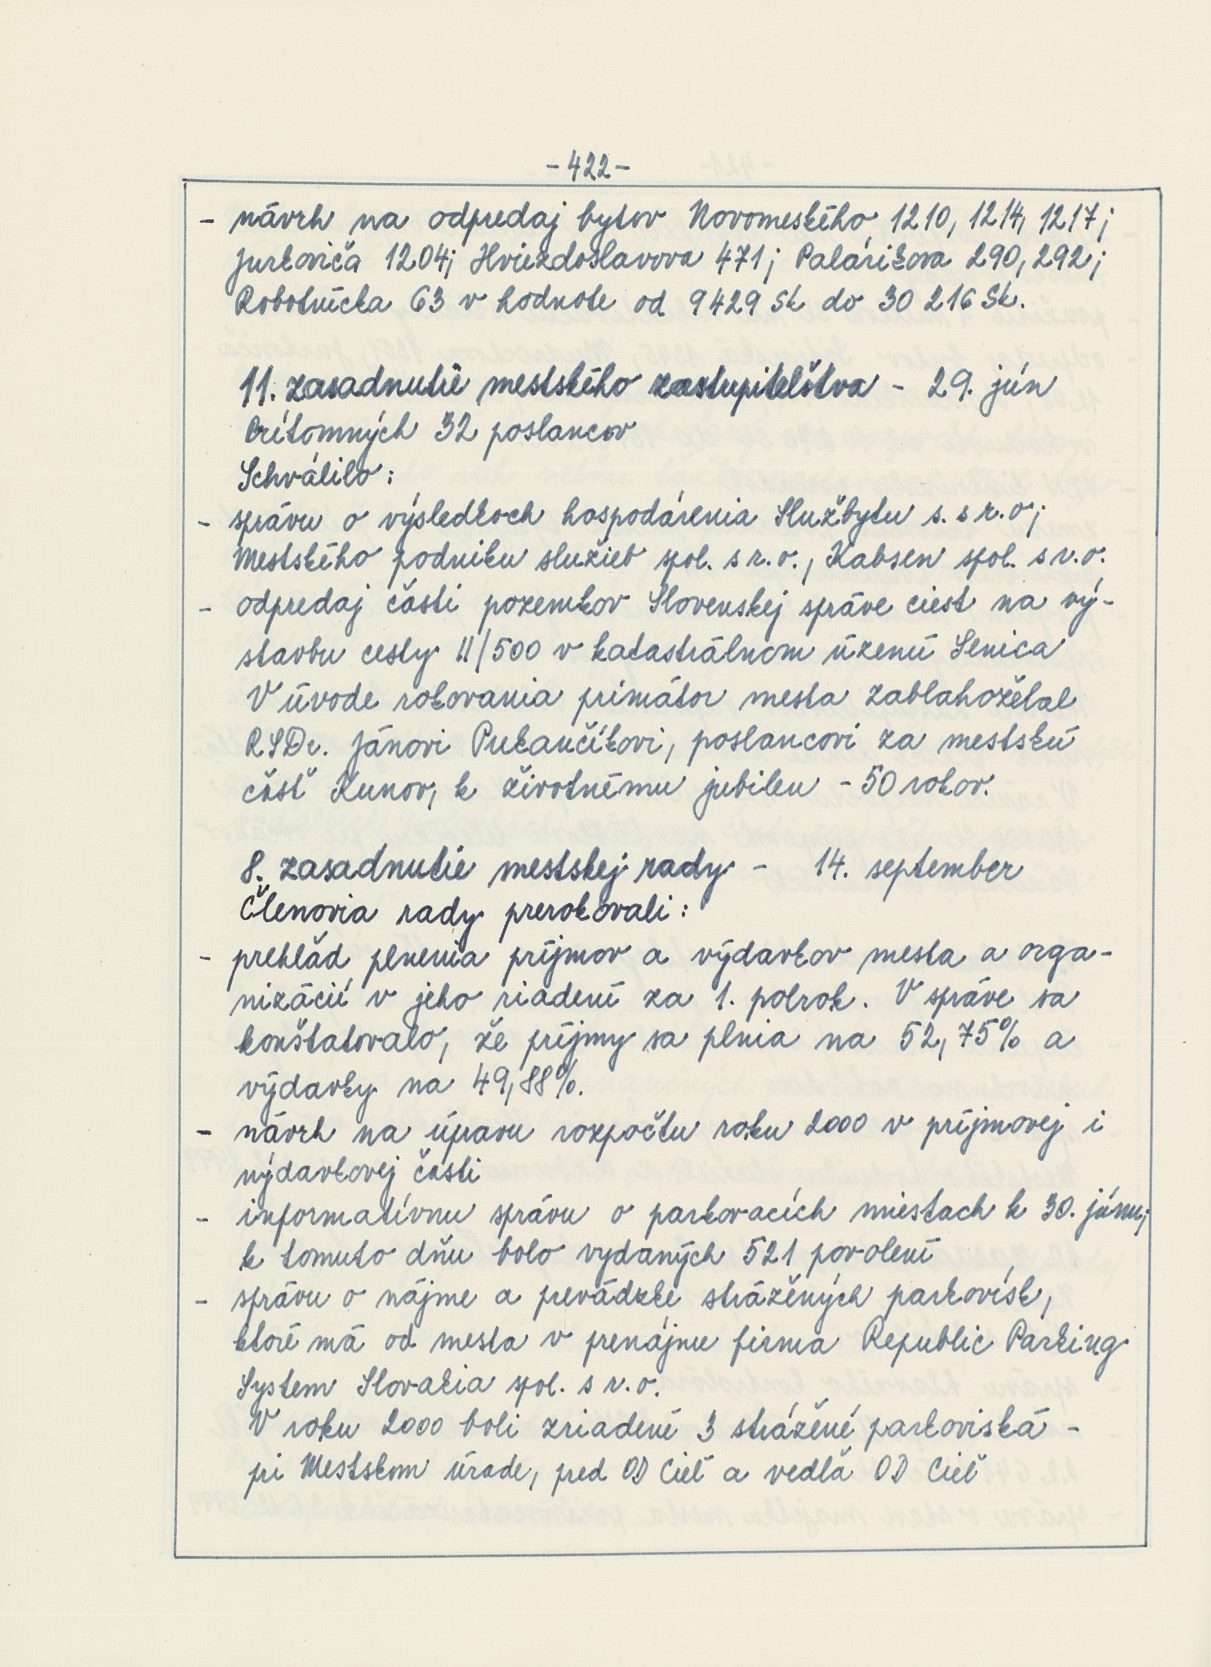 -422-
- návrh na odpredaj bytov Novomeského 1210, 1214, 1217;
Jurkoviča 1204; Hviezdoslavova 471; Palárikova 290, 292;
Robotnícka 63 v hodnote od 9429 Sk do 30 216 Sk.
11. zasadnutie mestského zastupiteľstva - 29. jún
Prítomných 32 poslancov
Schválilo:
- správu o výsledkoch hospodárenia Službytu s. s r. o;
Mestského podniku služieb spol. s r. o., Kabsen spol. s r. o.
- odpredaj častí pozemkov Slovenskej správe ciest na vý-
stavbu cesty II/500 v katastrálnom území Senica
V úvode rokovania primátor mesta zablahoželal
RSDr. Jánovi Pukančíkovi, poslancovi za mestskú
časť Kunov, k životnému jubileu - 50 rokov.
8. zasadnutie mestskej rady - 14. september
Členovia rady prerokovali:
- prehľad plnenia príjmov a výdavkov mesta a orga-
nizácií v jeho riadení za 1. polrok. V správe sa
konštatovalo, že príjmy sa plnia na 52,75% a
výdavky na 49,88%.
- návrh na úpravu rozpočtu roku 2000 v príjmovej i
výdavkovej časti
- informatívnu správu o parkovacích miestach k 30. júnu;
k tomuto dňu bolo vydaných 521 povolení
- správu o nájme a prevádzke strážených parkovísk,
ktoré má od mesta v prenájme firma Republic Parking
System Slovakia spol. s r. o.
V roku 2000 boli zriadené 3 strážené parkoviská -
pri Mestskom úrade, pred OD Cieľ a vedľa OD Cieľ